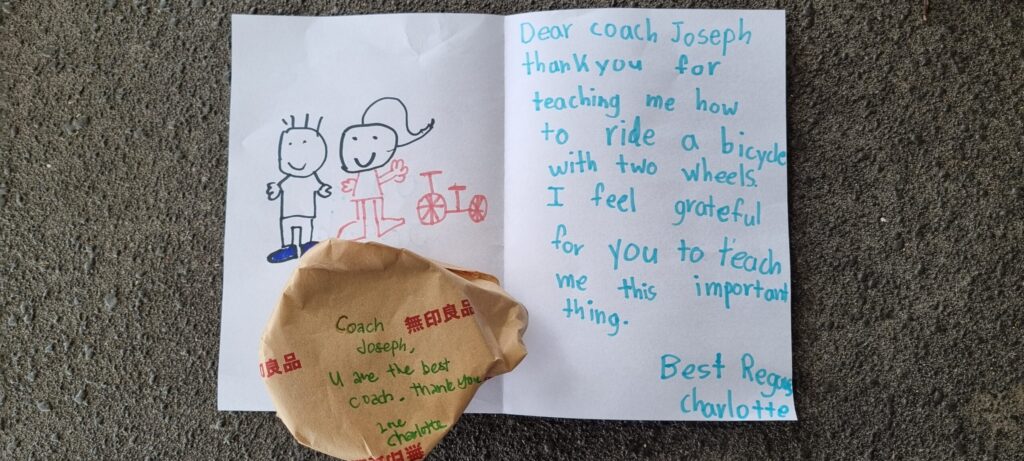 Dear coach Joseph
thank you for
teaching me how
to ride a bicycle
with two wheels.
I feel grateful
for you to teach
me this important
thing.
Best Regards
Charlotte
Coach
Joseph,
U are the best
coach. thank you
Charlotte
無印良品
印良品
無印良